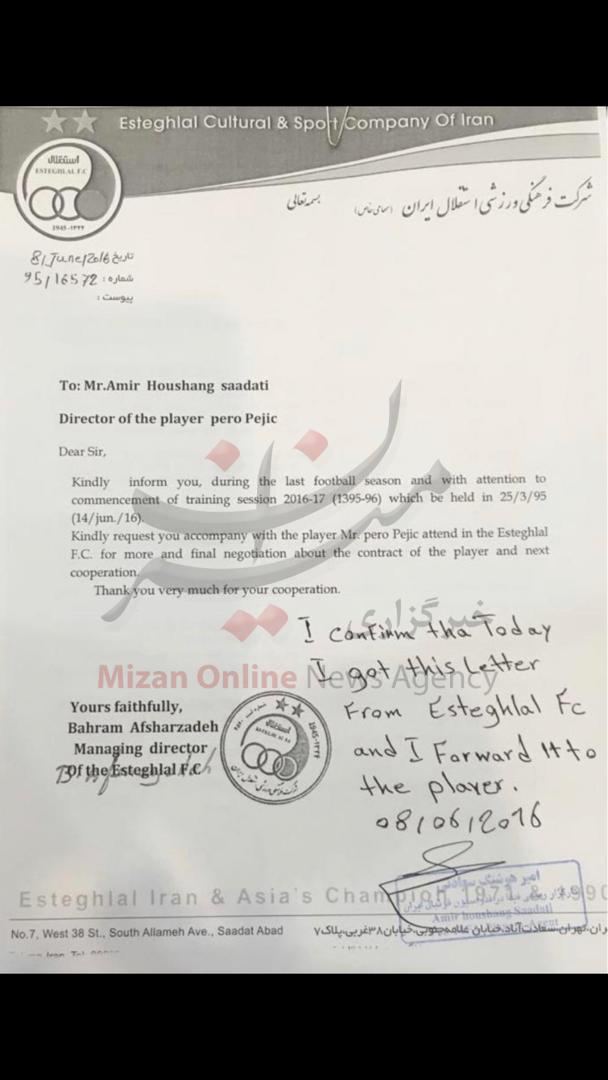 Esteghlal Cultural & Sport Company Of Iran
استقلال
ESTEGHLAL F.C
1945-۱۳۲۴
شرکت فرهنگی ورزشی استقلال ایران (سهامی خاص)
بسمه‌تعالی
تاریخ: 8/June/2016
شماره: 95/16572
پیوست:
To: Mr.Amir Houshang saadati
Director of the player pero Pejic
Dear Sir,
Kindly inform you, during the last football season and with attention to
commencement of training session 2016-17 (1395-96) which be held in 25/3/95
(14/jun./16).
Kindly request you accompany with the player Mr. pero Pejic attend in the Esteghlal
F.C. for more and final negotiation about the contract of the player and next
cooperation.
Thank you very much for your cooperation.
میزان
خبرگزاری
Mizan Online News Agency
I confirm tha Today
I got this letter
From Esteghlal Fc
and I Forward It to
the player.
08/06/2016
Yours faithfully,
Bahram Afsharzadeh
Managing director
Of the Esteghlal F.C
استقلال
1945-۱۳۲۴
شرکت فرهنگی ورزشی استقلال ایران
امیر هوشنگ سعادتی
Amir houshang Saadati
Agent
Esteghlal Iran & Asia's Champion 1971 & 1990
No.7, West 38 St., South Allameh Ave., Saadat Abad
تهران، سعادت‌آباد، خیابان علامه جنوبی، خیابان ۳۸ غربی، پلاک ۷